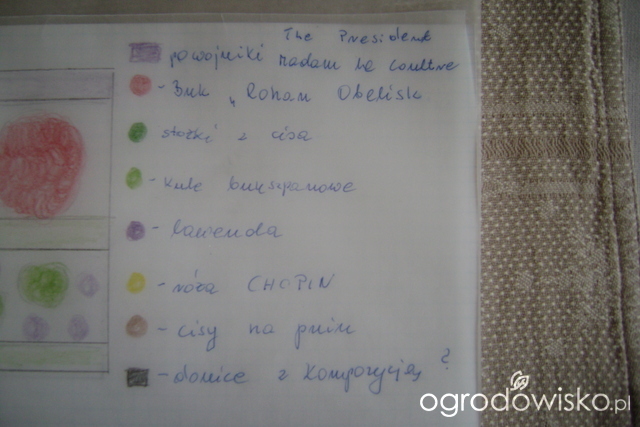 The President
powojniki Madam le Coultre
- Buk „ Rohan Obelisk
stożki z cisa
- kule bukszpanowe
- lawenda
- róża CHOPIN
- cisy na pniu
- donice z kompozycją ?
ogrodowisko.pl